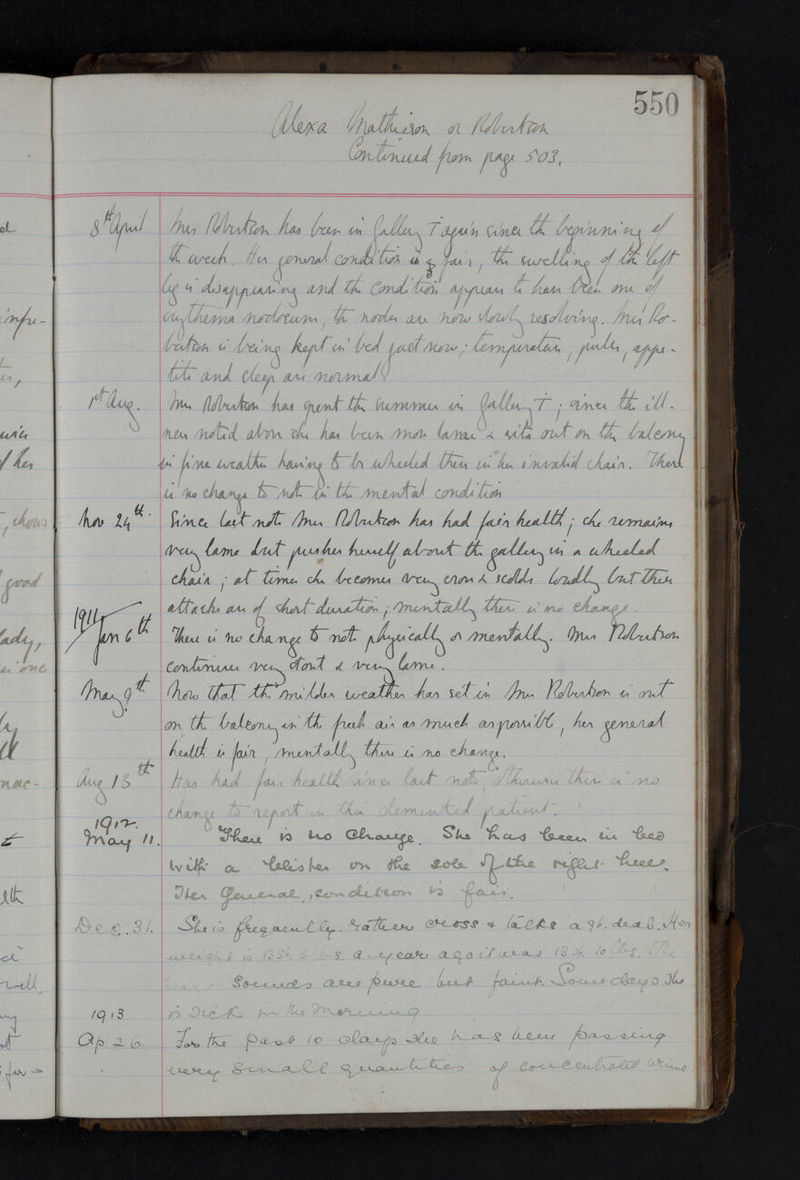 550
Alexa Mathieson or Robertson
Continued from page 503.
8th April. Mrs Robertson has been in Gallery again since the beginning of
the week. Her general condition is fair, the swelling of the left
leg is disappearing and the condition appears to have been one of
erythema nodosum, the nodes are now slowly resolving. Mrs Ro-
bertson is being kept in bed just now; temperature, pulse, appe-
tite and sleep are normal.
1st Aug. Mrs Robertson has spent the summer in Gallery; since the ill-
ness noted above she has been more lame & sits out on the balcony
in fine weather having to be wheeled there in her invalid chair. There
is no change to note in the mental condition
Nov 24th. Since last note Mrs Robertson has had fair health; she remains
very lame but pushes herself about the gallery in a wheeled
chair; at times she becomes very cross & scolds loudly but these
attacks are of short duration, mentally there is no change.
1911
Jan 6th There is no change to note physically or mentally. Mrs Robertson
continues very stout & very lame.
May 9th Now that the milder weather has set in Mrs Robertson is out
on the balcony in the fresh air as much as possible, her general
health is fair, mentally there is no change.
Aug 13th Has had fair health since last note otherwise there is no
change to report in this demented patient.
1912.
May 11. There is no change. She has been in bed
with a blister on the sole of the right heel.
Her general condition is fair.
Dec. 31. She is frequently rather cross & talks a gt. deal. Her
weight is 13 st. 3 lbs. a year ago it was 13 st. 10 lbs. The
sounds are pure but faint. Some days she
is sick in the morning
1913
Ap. 26 For the past 10 days she has been passing
very small quantities of concentrated urine